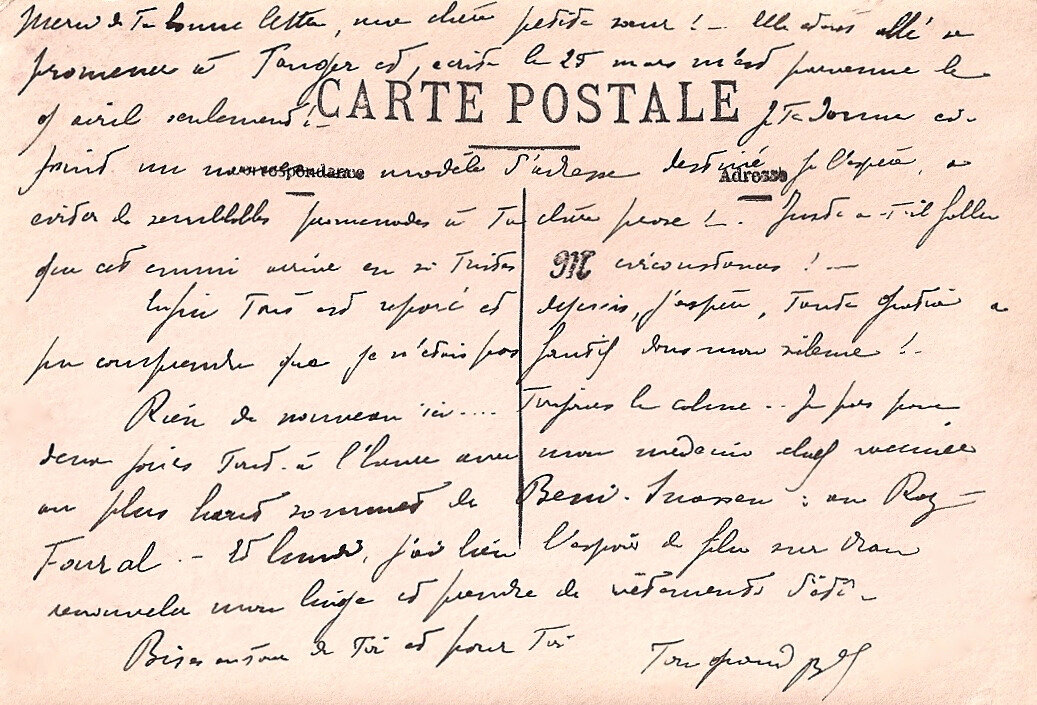 Merci de Ta bonne lettre, ma chère petite sœur ! – Elle était allé se
promener à Tanger et, écrite le 25 mars m'est parvenue le
9 avril seulement !
CARTE POSTALE
Je Te donne ci-
joint un nouveau modèle d'adresse destiné, je l'espère, a
Correspondance
Adresse
eviter de semblables promenades à Ta chère prose ! – Juste a-t-il fallu
que cet ennui arrive en si Tristes circonstances ! –
M
Enfin Tout est reparé et depuis, j'espère, Tante a
pu comprendre que je n'étais pas fautif dans mon silence ! –
Rien de nouveau ici .... Toujours le calme .. Je pars pour
deux jours Tout à l'heure avec mon médecin chef vacciner
au plus haut sommet de Beni-Snassen : au Ras
Foural – Et lundi, j'ai bien l'espoir de filer sur Oran
renouveler mon linge et prendre de vêtements d'été –
Bises de Toi et pour Toi
Ton grand